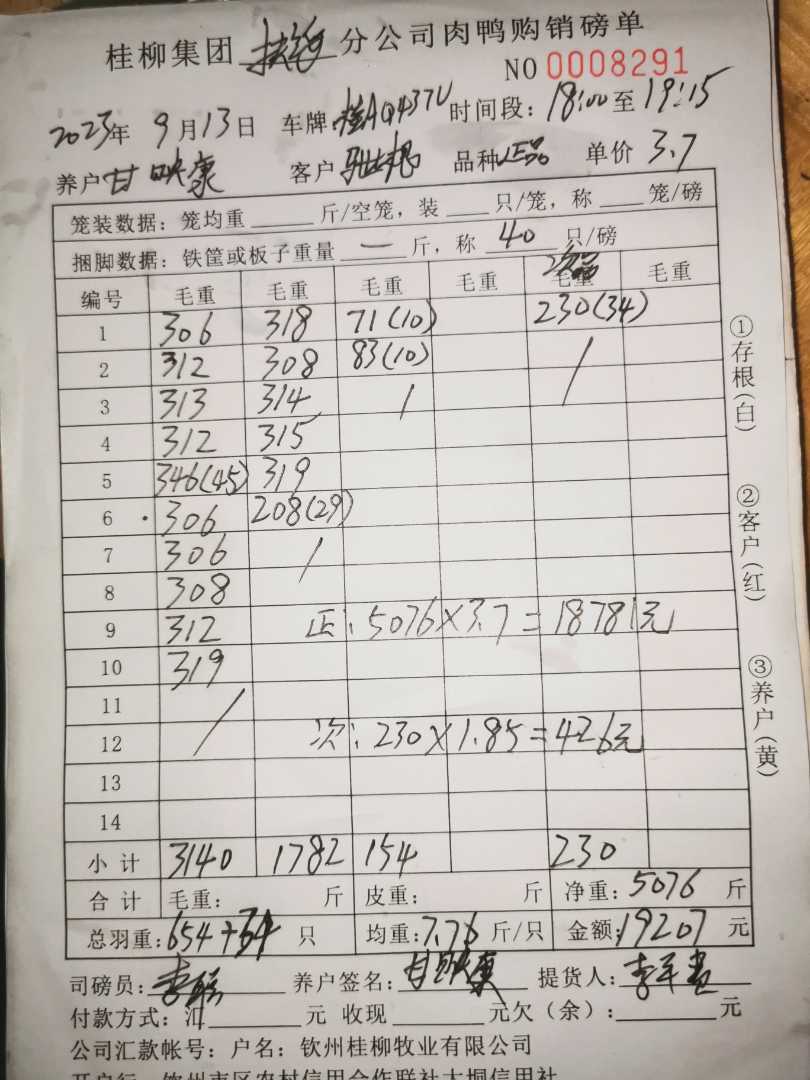 桂柳集团 扶绥 分公司肉鸭购销磅单
NO 0008291
2023年 9月13日 车牌 桂AQ437U 时间段：18:00至19:15
养户 甘映康 客户 品种 正品 单价 3.7
笼装数据：笼均重 斤/空笼，装 只/笼，称 笼/磅
捆脚数据：铁筐或板子重量 一 斤，称 40 只/磅
编号 毛重 毛重 毛重 毛重 次品 毛重 毛重
1 306 318 71(10) 230(34)
2 312 308 83(10) /
3 313 314 /
4 312 315
5 346(45) 319
6 306 208(29)
7 306 /
8 308
9 312 正：5076×3.7=18781元
10 319
11 /
12 次：230×1.85=426元
13
14
小计 3140 1782 154 230
合计 毛重： 斤 皮重： 斤 净重：5076 斤
总羽重：654+34 只 均重：7.76 斤/只 金额：19207 元
司磅员： 养户签名：甘映康 提货人：
付款方式：汇 元 收现 元欠（余）： 元
公司汇款帐号：户名：钦州桂柳牧业有限公司
开户行：钦州市区农村信用合作联社大垌信用社
①存根(白)
②客户(红)
③养户(黄)